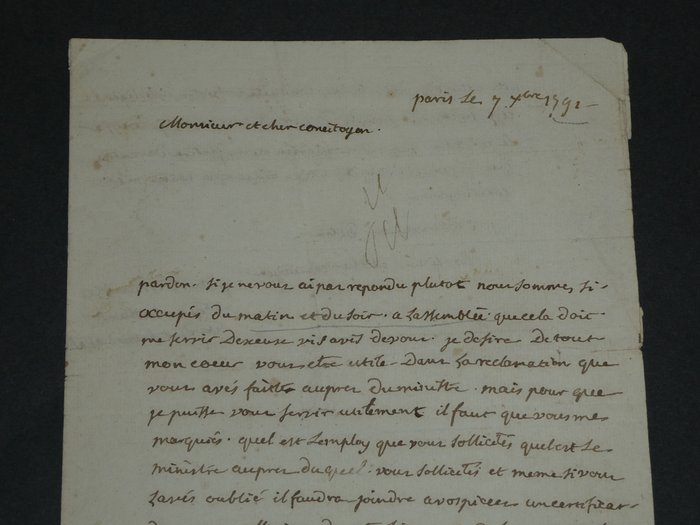 paris Le 7 xbre 1791
Monsieur et cher concitoyen.
pardon. si je ne vous ai pas repondu plutot nous sommes si-
occupés du matin et du soir. a Lassemblée que cela doit.
me servir Dexcuse vis avis de vous. je desire De tout
mon coeur vous etre utile. Dans La reclamation que
vous avés faitte aupres Du ministre. mais pour que
je puisse vous servir utilement il faut que vous me
marquiés. quel est Lemploy que vous sollicités quel est Le
ministre aupres du quel. vous sollicités et meme si vous
Lavés oublié il faudra joindre a vos pieces un certificat-